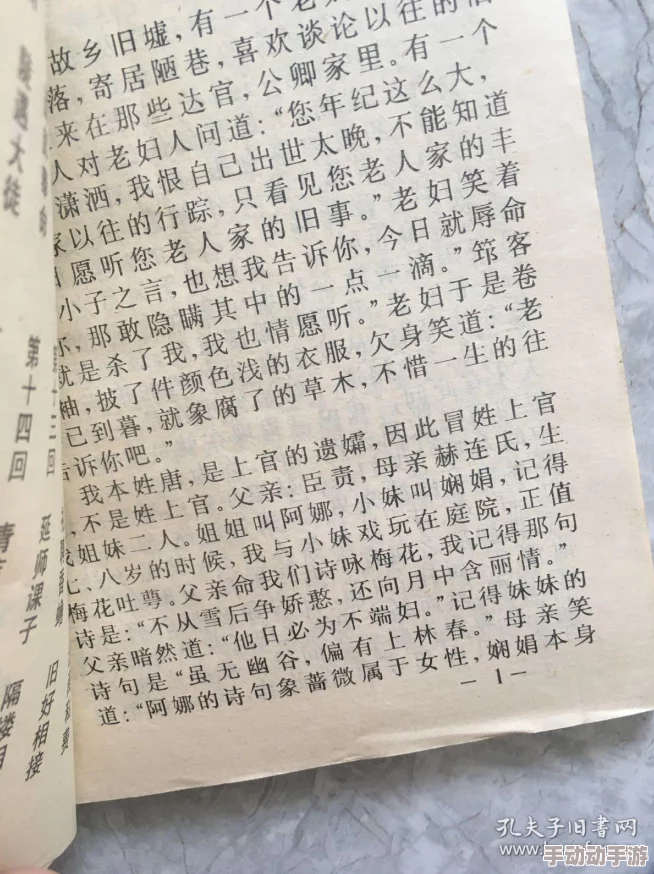 故乡旧墟，有一个老妇
落，寄居陋巷，喜欢谈论以往的
来在那些达官，公卿家里。有一个
人对老妇人问道：“您年纪这么大，
潇洒，我恨自己出世太晚，不能知道
家以往的行踪，只看见您老人家的丰
愿听您老人家的旧事。”老妇笑着
小子之言，也想我告诉你，今日就辱命
你，那敢隐瞒其中的一点一滴。”筇客
就是杀了我，我也情愿听。”老妇于是卷
袖，披了件颜色浅的衣服，欠身笑道：“老
已到暮，就象腐了的草木，不惜一生的往
告诉你吧。”
我本姓唐，是上官的遗孀，因此冒姓上官
，不是姓上官。父亲：臣责，母亲赫连氏，生
姐妹二人。姐姐叫阿娜，小妹叫娴娟，记得
七、八岁的时候，我与小妹戏玩在庭院，正值
梅花吐萼。父亲命我们诗咏梅花，我记得那句
诗是：“不从雪后争娇憨，还向月中含丽情。”
父亲暗然道：“他日必为不端妇。”记得妹妹的
诗句是“虽无幽谷，偏有上林春。”母亲笑
道：“阿娜的诗句象蔷薇属于女性，娴娟本身
— 1 —
大徒
第十三回
延师课子
旧好相接
第十四回
隔楼相
孔夫子旧書网
手动动手游